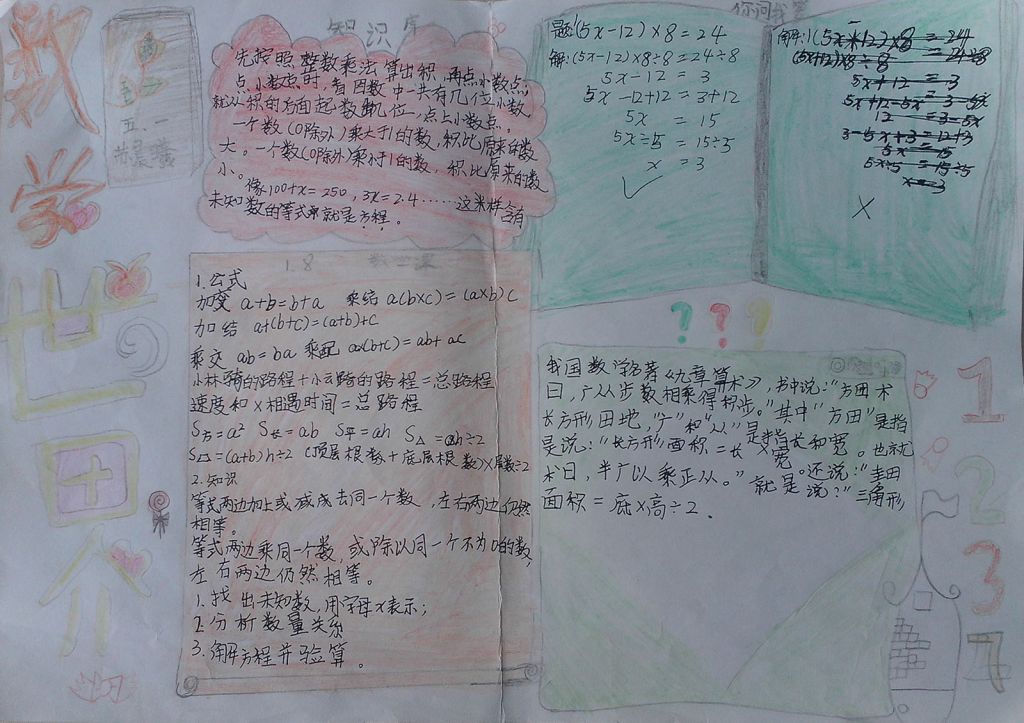 数学世界
五、一
知识库
先按照整数乘法算出积,再点小数点,
点小数点时,看因数中一共有几位小数
就从积的右面起数出几位,点上小数点。
一个数(0除外)乘大于1的数,积比原来的数
大。一个数(0除外)乘小于1的数,积比原来的数
小。
像100+x=250,3x=2.4……这
未知数的等式就是方程。
你问我答
题:(5x-12)×8=24
解:(5x-12)×8÷8=24÷8
5x-12=3
5x-12+12=3+12
5x=15
5x÷5=15÷5
x=3
解:
(5x+12)×8=24
(5x+12)×8÷8=24÷8
5x+12=3
5x+12-5x=3-5x
12=3-5x
5x=15
5x÷5=15÷5
x=3
1.公式
加交 a+b=b+a 乘结 a(b×c)=(a×b)c
加结 a+(b+c)=(a+b)+c
乘交 ab=ba 乘配 a×(b+c)=ab+ac
小林骑的路程+小云骑的路程=总路程
速度和×相遇时间=总路程
S方=a² S长=ab S平=ah S△=ah÷2
S=(a+b)h÷2 (顶层根数+底层根数)×层数÷2
2.知识
等式两边加上或减去同一个数,左右两边仍然
相等。
等式两边乘同一个数,或除以同一个不为0的数,
左右两边仍然相等。
1.找出未知数,用字母x表示;
2.分析数量关系
3.解方程并验算。
? ? ?
我国数学名著《九章算术》,书中说:“方田术
曰,广从步数相乘得积步。”其中“方田”是指
长方形田地,“广”和“从”是指长和宽。也就
是说:“长方形面积=长×宽。还说:“圭田
术曰,半广以乘正从。”就是说:“三角形
面积=底×高÷2.
1
2
3